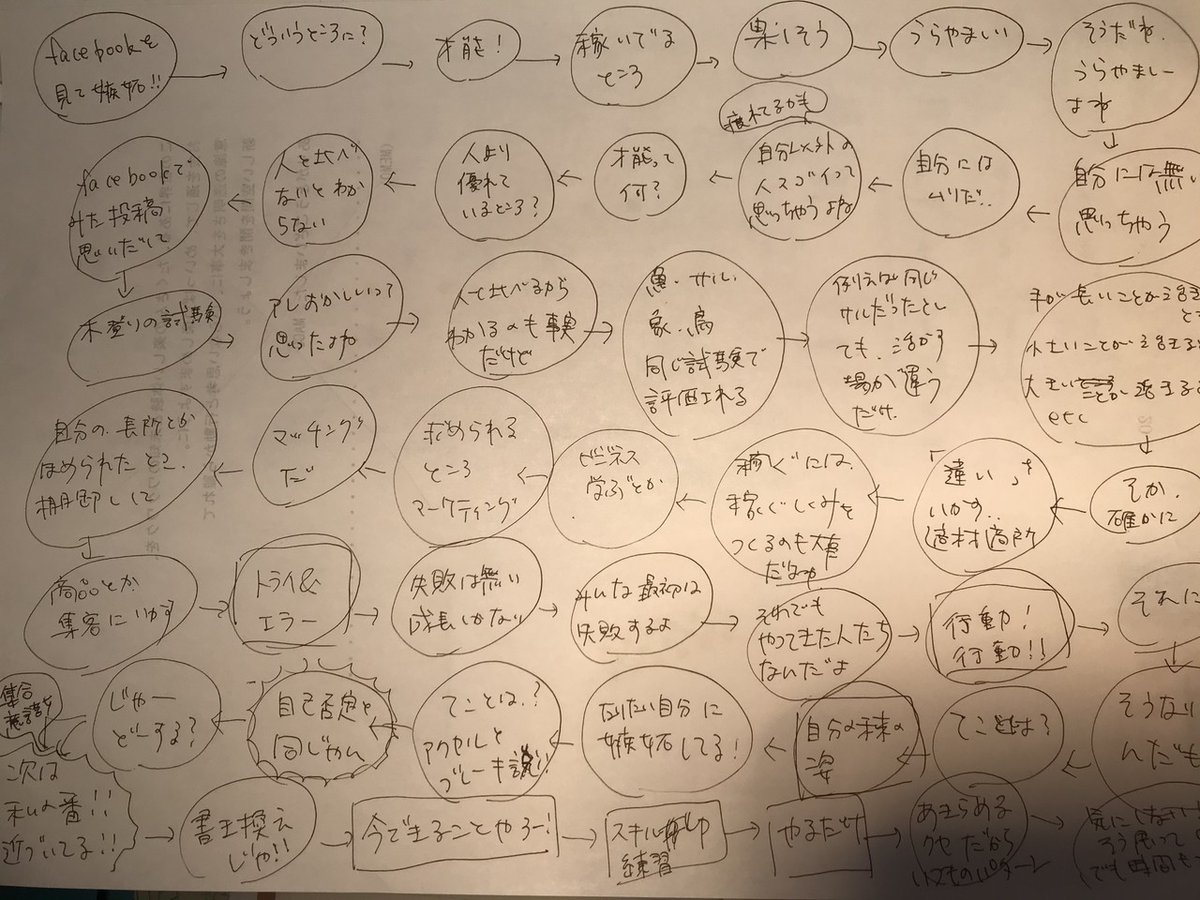 facebookを
見て嫉妬!!
どういうところに?
才能!
稼いでる
ところ
楽しそう
うらやましい
そうだね、
うらやましー
よね
自分には無い
思っちゃう
自分には
ムリだ..
疲れてるかも
自分以外の
人スゴイって
思っちゃうよね
才能って
何?
人より
優れて
いるところ?
人と比べ
ないとわか
らない
facebookで
みた投稿
思いだして
木登りの試験
アレおかしいって
思ったよね
人と比べるから
わかるのも事実
だけど
魚・サル・
象・鳥
同じ試験で
評価される
例えば同じ
サルだったとし
ても、活かす
場が違う
だけ
手が長いことが活き
と
小さいことが活きる
大きいことが活きる
etc
そか、
確かに
「違い」を
いかす..
適材適所
稼ぐには、
稼ぐしくみを
つくるのも大事
だよね
ビジネス
学ぶとか
求められる
ところ
マーケティング
マッチング
だ
自分の長所とか
ほめられたとこ、
棚卸しして
商品とか
集客にいかす
トライ&
エラー
失敗は無い
成長しかない
みんな最初は
失敗するよ
それでも
やってきた人たち
なんだよ
行動!
行動!!
それに
そうなり
んだも
てことは?
自分の未来の
姿
なりたい自分に
嫉妬してる!
てことは、?
アクセルと
ブレーキ説!!
自己否定と
同じやん
じゃー
どーする?
集合
意識を
次は
私の番!!
近づいてる!!
書き換え
じゃ!!
今できることやろー!
スキル
練習
やるだけ
あきらめる
クセだから
いつものパターン
気にしない
そう思って
でも時間も